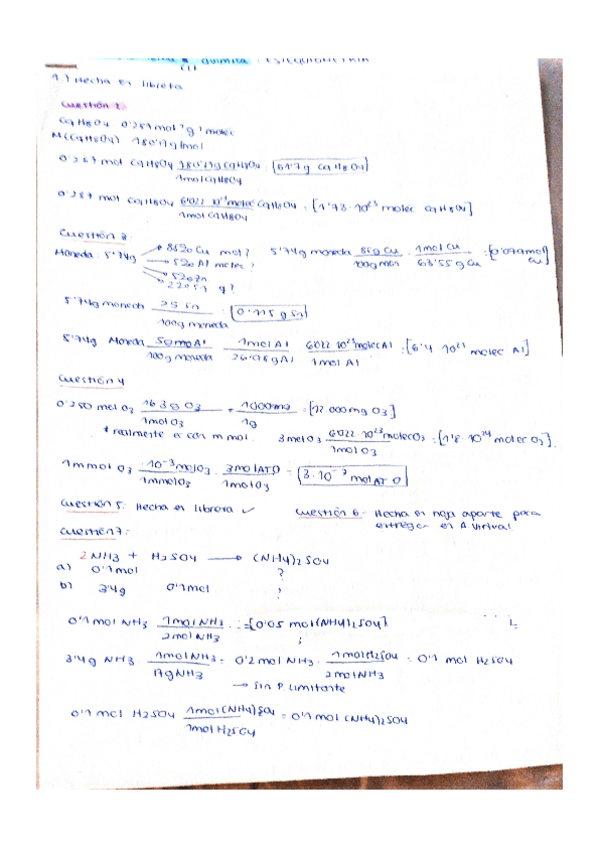 Química : ESTEQUIOMETRIA
1.) Hecha en libreta
Cuestión 2
C9H8O4 0'287 mol ? g ? molec
M(C9H8O4) 180'17g/mol
0'287 mol C9H8O4 180'17g C9H8O4 / 1mol C9H8O4 : [51'7g C9H8O4]
0'287 mol C9H8O4 6'022 · 10^23 molec C9H8O4 / 1mol C9H8O4 = [1'73 · 10^23 molec C9H8O4]
Cuestión 3:
Moneda : 5'74g
Cu mol?
Al molec ?
g?
5'74g moneda / 100g mon · 1mol Cu / 63'55g Cu = mol Cu
5'74g moneda / 100g moneda : [0'115 g Sn]
5'74g Moneda / 100g moneda 1mol Al / 26'98gAl 6'022 10^23 molec Al / 1mol Al = [6'4 · 10^21 molec Al]
Cuestión 4
0'250 mol O3 / 1mol O3 · 1000mg / 1g = [12.000mg O3]
* realmente es con mmol. 3mol O3 6'022 · 10^23 molec O3 / 1mol O3 = [1'8 · 10^24 molec O3].
1mmol O3 · 10^-3 mol O3 / 1mmol O3 · 3mol AT O / 1mol O3 = [3 · 10^-3 mol AT O]
Cuestión 5: Hecha en libreta ✓
Cuestión 6- Hecha en hoja aparte para
entregar en A. Virtual
Cuestión 7:
2NH3 + H2SO4 ⟶ (NH4)2SO4
a) 0'1mol ?
b) 3'4g 0'1mol ?
0'1mol NH3 / 2mol NH3 = [0'05 mol (NH4)2SO4]
3'4g NH3 · 1molNH3 / 17gNH3 = 0'2mol NH3 · 1mol H2SO4 / 2molNH3 = 0'1 mol H2SO4
→ sin R limitante
0'1 mol H2SO4 1mol (NH4)2SO4 / 1mol H2SO4 = 0'1 mol (NH4)2SO4